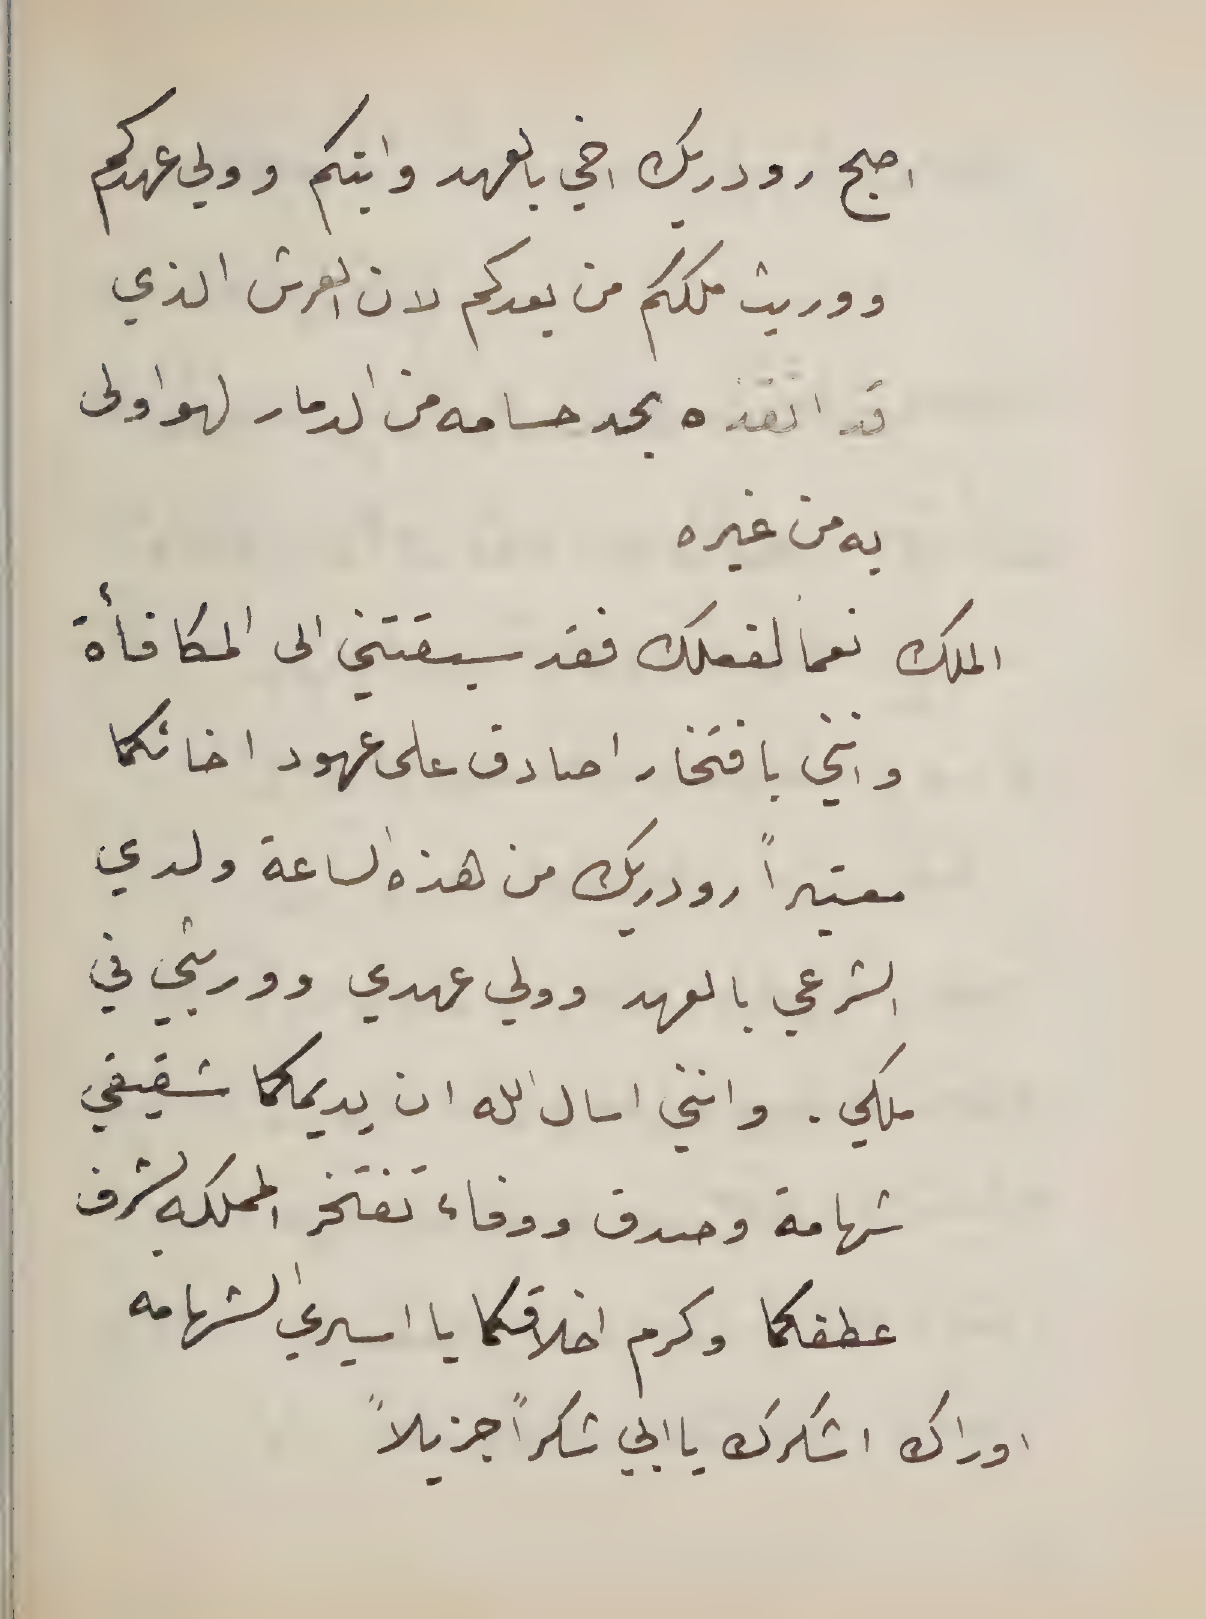 اصبح رودريك اخي بالعهد وابنكم وولي عهدكم
ووريث ملككم من بعدكم لان العرش الذي
قد انقذه بحد حسامه من الدمار لهو اولى
به من غيره
الملك نعما لفعلك فقد سبقتني الى المكافأة
وانني بافتخار اصادق على عهود اخائكما
معتبراً رودريك من هذه الساعة ولدي
الشرعي بالعهد وولي عهدي ووريثي في
ملكي . وانني اسال الله ان يديمكما شقيقي
شهامة وصدق ووفاء تفتخر المملكه بشرف
عطفكما وكرم اخلاقكما يا اسيري الشهامه
اوراك اشكرك يا ابي شكراً جزيلاً